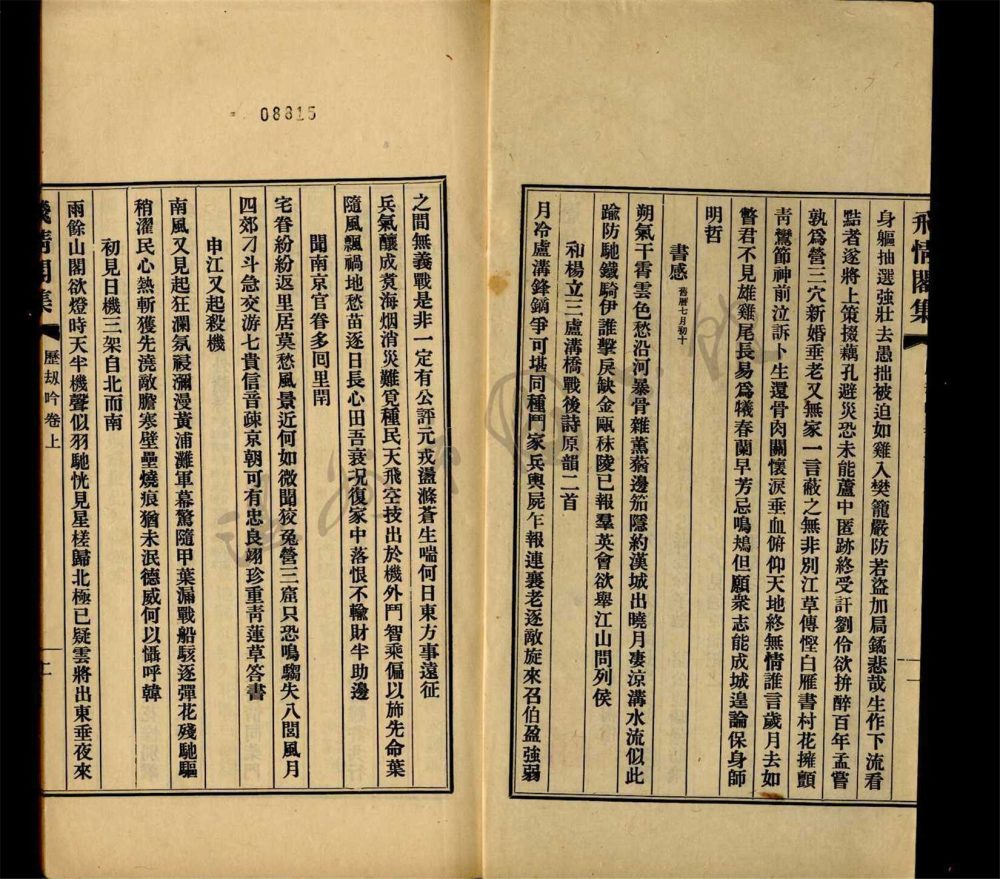 08815
飛情閣集
身軀抽選強壯去愚拙被迫如雞入樊籠嚴防若盜加局鐍悲哉生作下流看
黠者遂將上策掇藕孔避災恐未能蘆中匿跡終受訐劉伶欲拚醉百年孟嘗
孰爲營三穴新婚垂老又無家一言蔽之無非別江草傳慳白雁書村花擁顫
青鸞節神前泣訴卜生還骨肉關懷淚垂血俯仰天地終無情誰言歲月去如
瞥君不見雄雞尾長易爲犧春蘭早芳忌鳴鴂但願衆志能成城遑論保身師
明哲
書感 舊曆七月初十
朔氣干霄雲色愁沿河暴骨雜薰蕕邊笳隱約漢城出曉月凄涼溝水流似此
踰防馳鐵騎伊誰擊戾缺金甌秣陵已報羣英會欲舉江山問列侯
和楊立三盧溝橋戰後詩原韻二首
月冷盧溝鋒鏑爭可堪同種鬥家兵輿屍乍報連襄老逐敵旋來召伯盈強弱
之間無義戰是非一定有公評元戎盪滌蒼生喘何日東方事遠征
兵氣釀成煑海烟消災難覓種民天飛空技出於機外鬥智乘偏以斾先命葉
隨風飄禍地愁苗逐日長心田吾衰況復家中落恨不輸財半助邊
聞南京官眷多囘里閈
宅眷紛紛返里居莫愁風景近何如微聞狡兔營三窟只恐鳴騶失八閭風月
四郊刁斗急交游七貴信音疎京朝可有忠良翊珍重青蓮草答書
申江又起殺機
南風又見起狂瀾氛祲瀰漫黃浦灘軍幕驚隨甲葉漏戰船駭逐彈花殘馳驅
稍濯民心熱斬獲先澆敵膽寒壁壘燒痕猶未泯德威何以懾呼韓
初見日機三架自北而南
雨餘山閣欲燈時天半機聲似羽馳恍見星槎歸北極已疑雲將出東垂夜來
歷刼吟 卷上